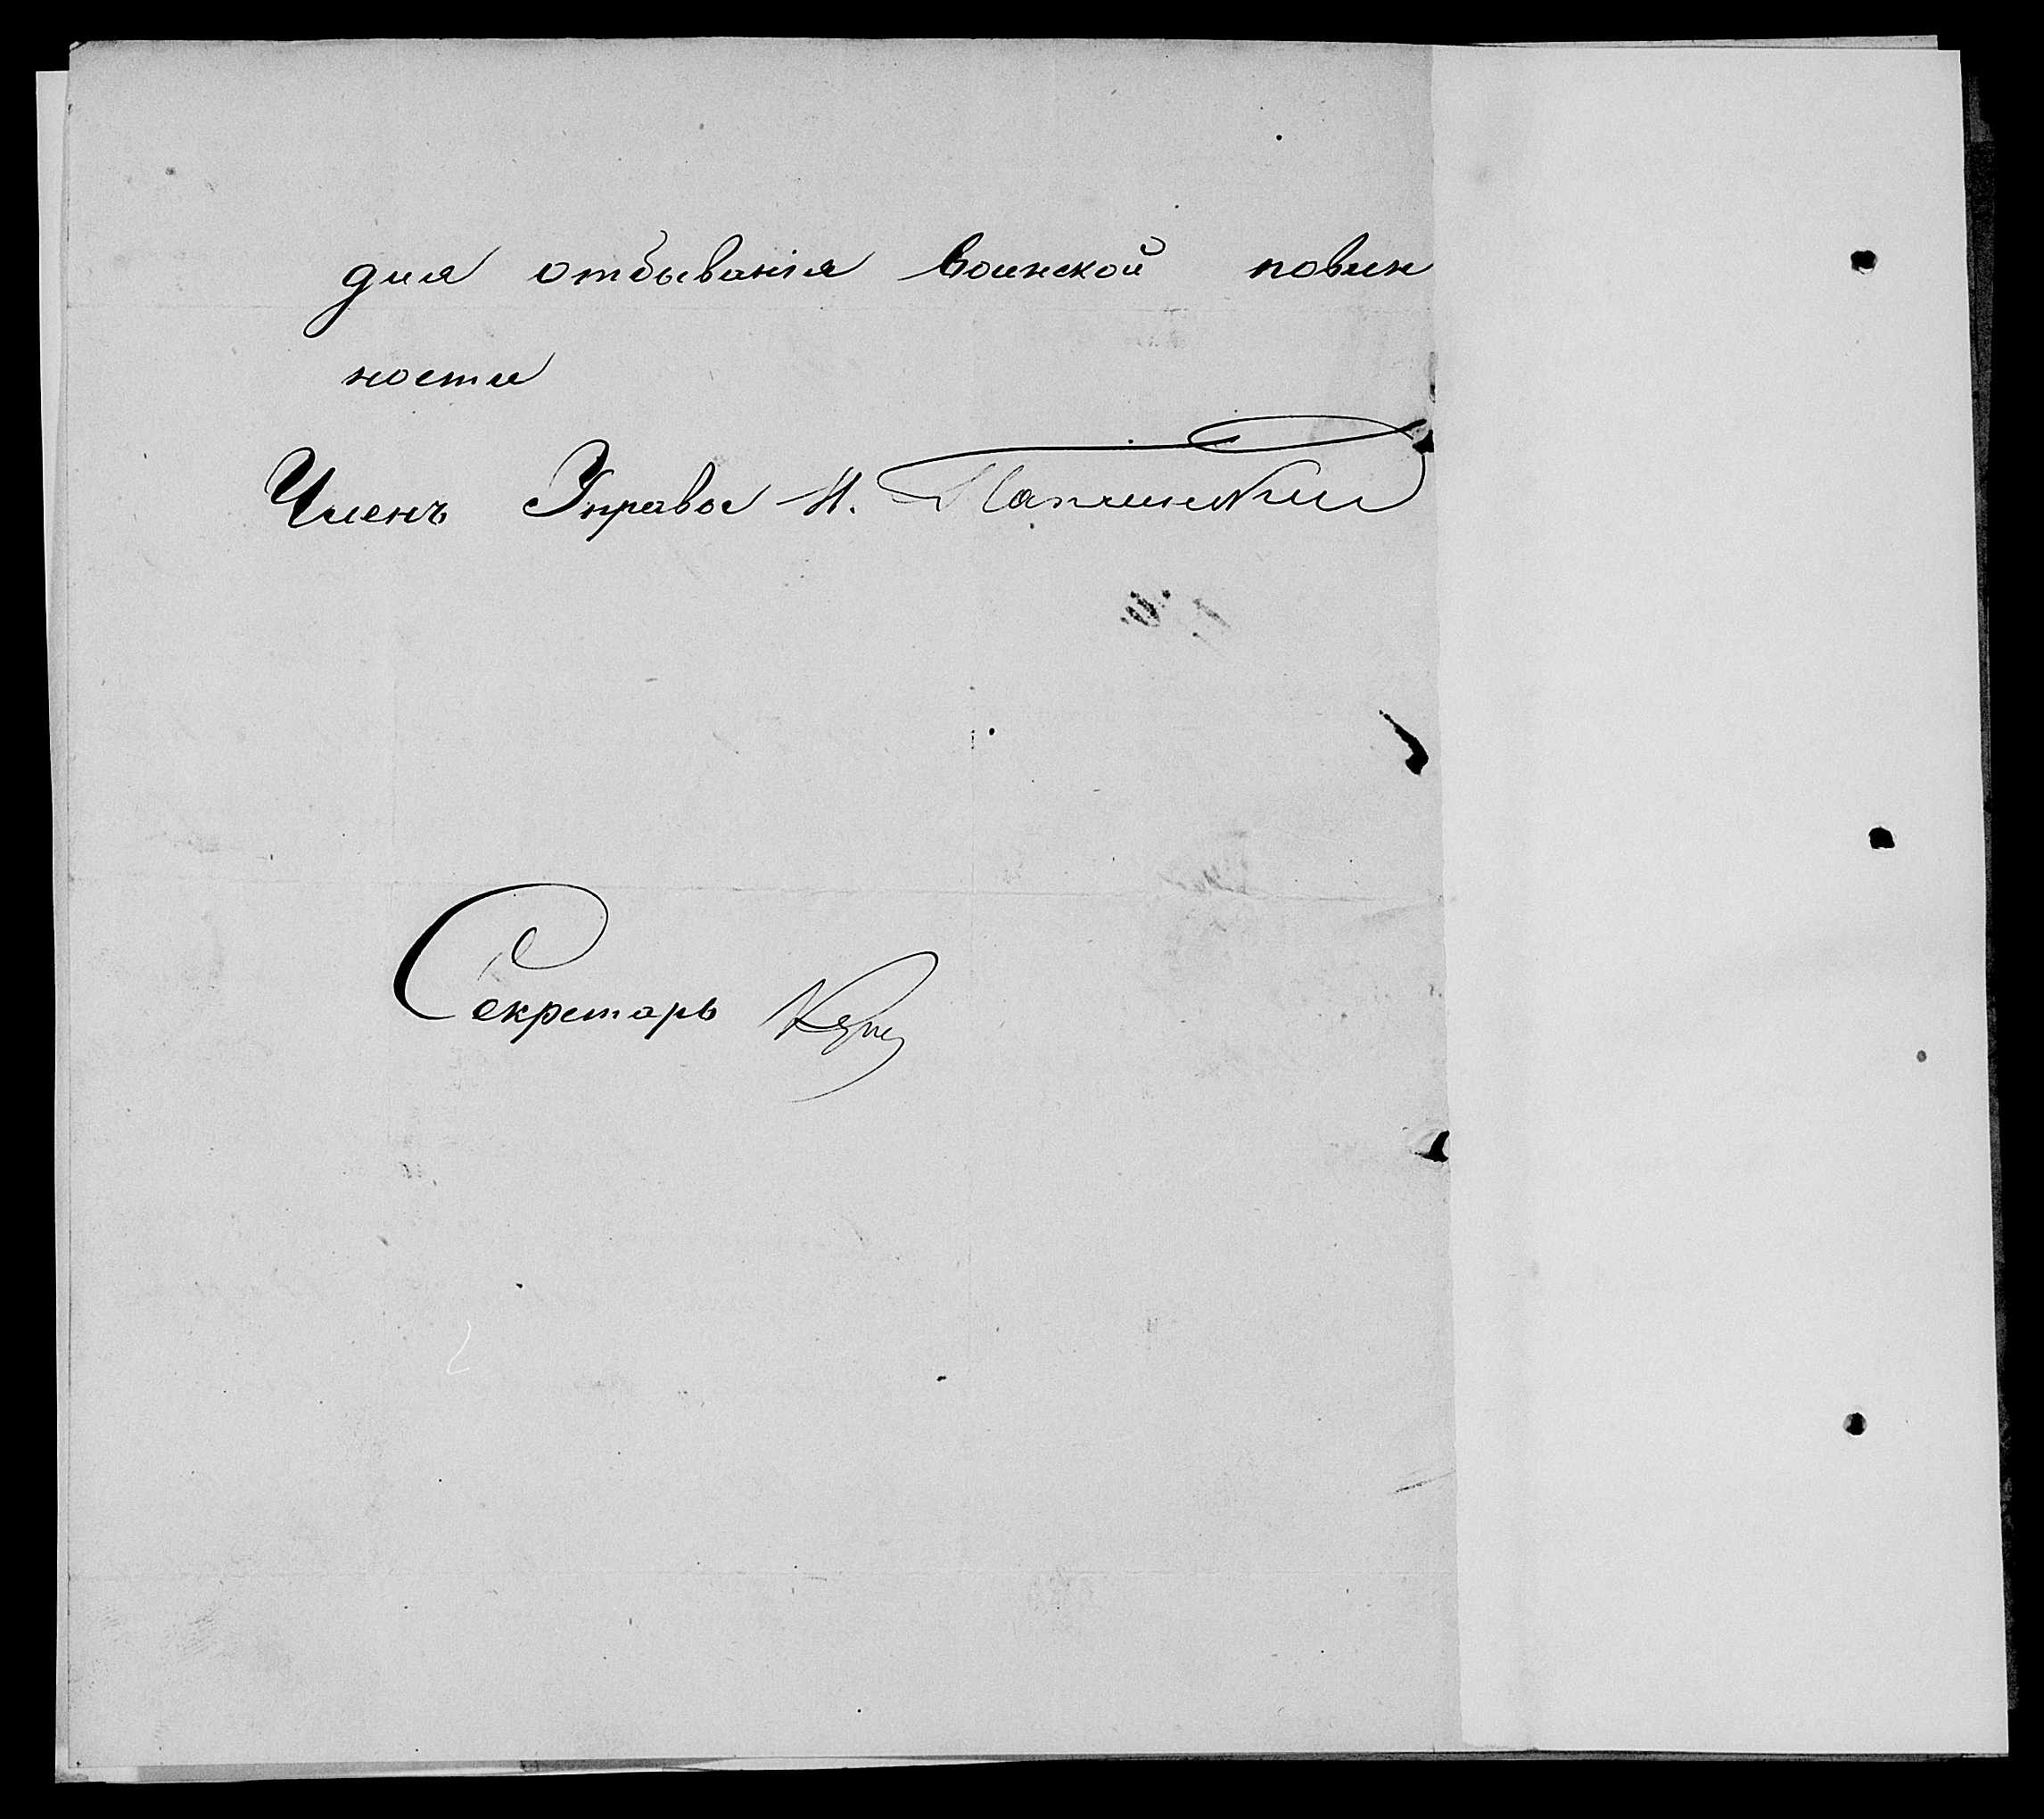 для отбыванія воинской повин
ности
Членъ Управы И.
Секретарь